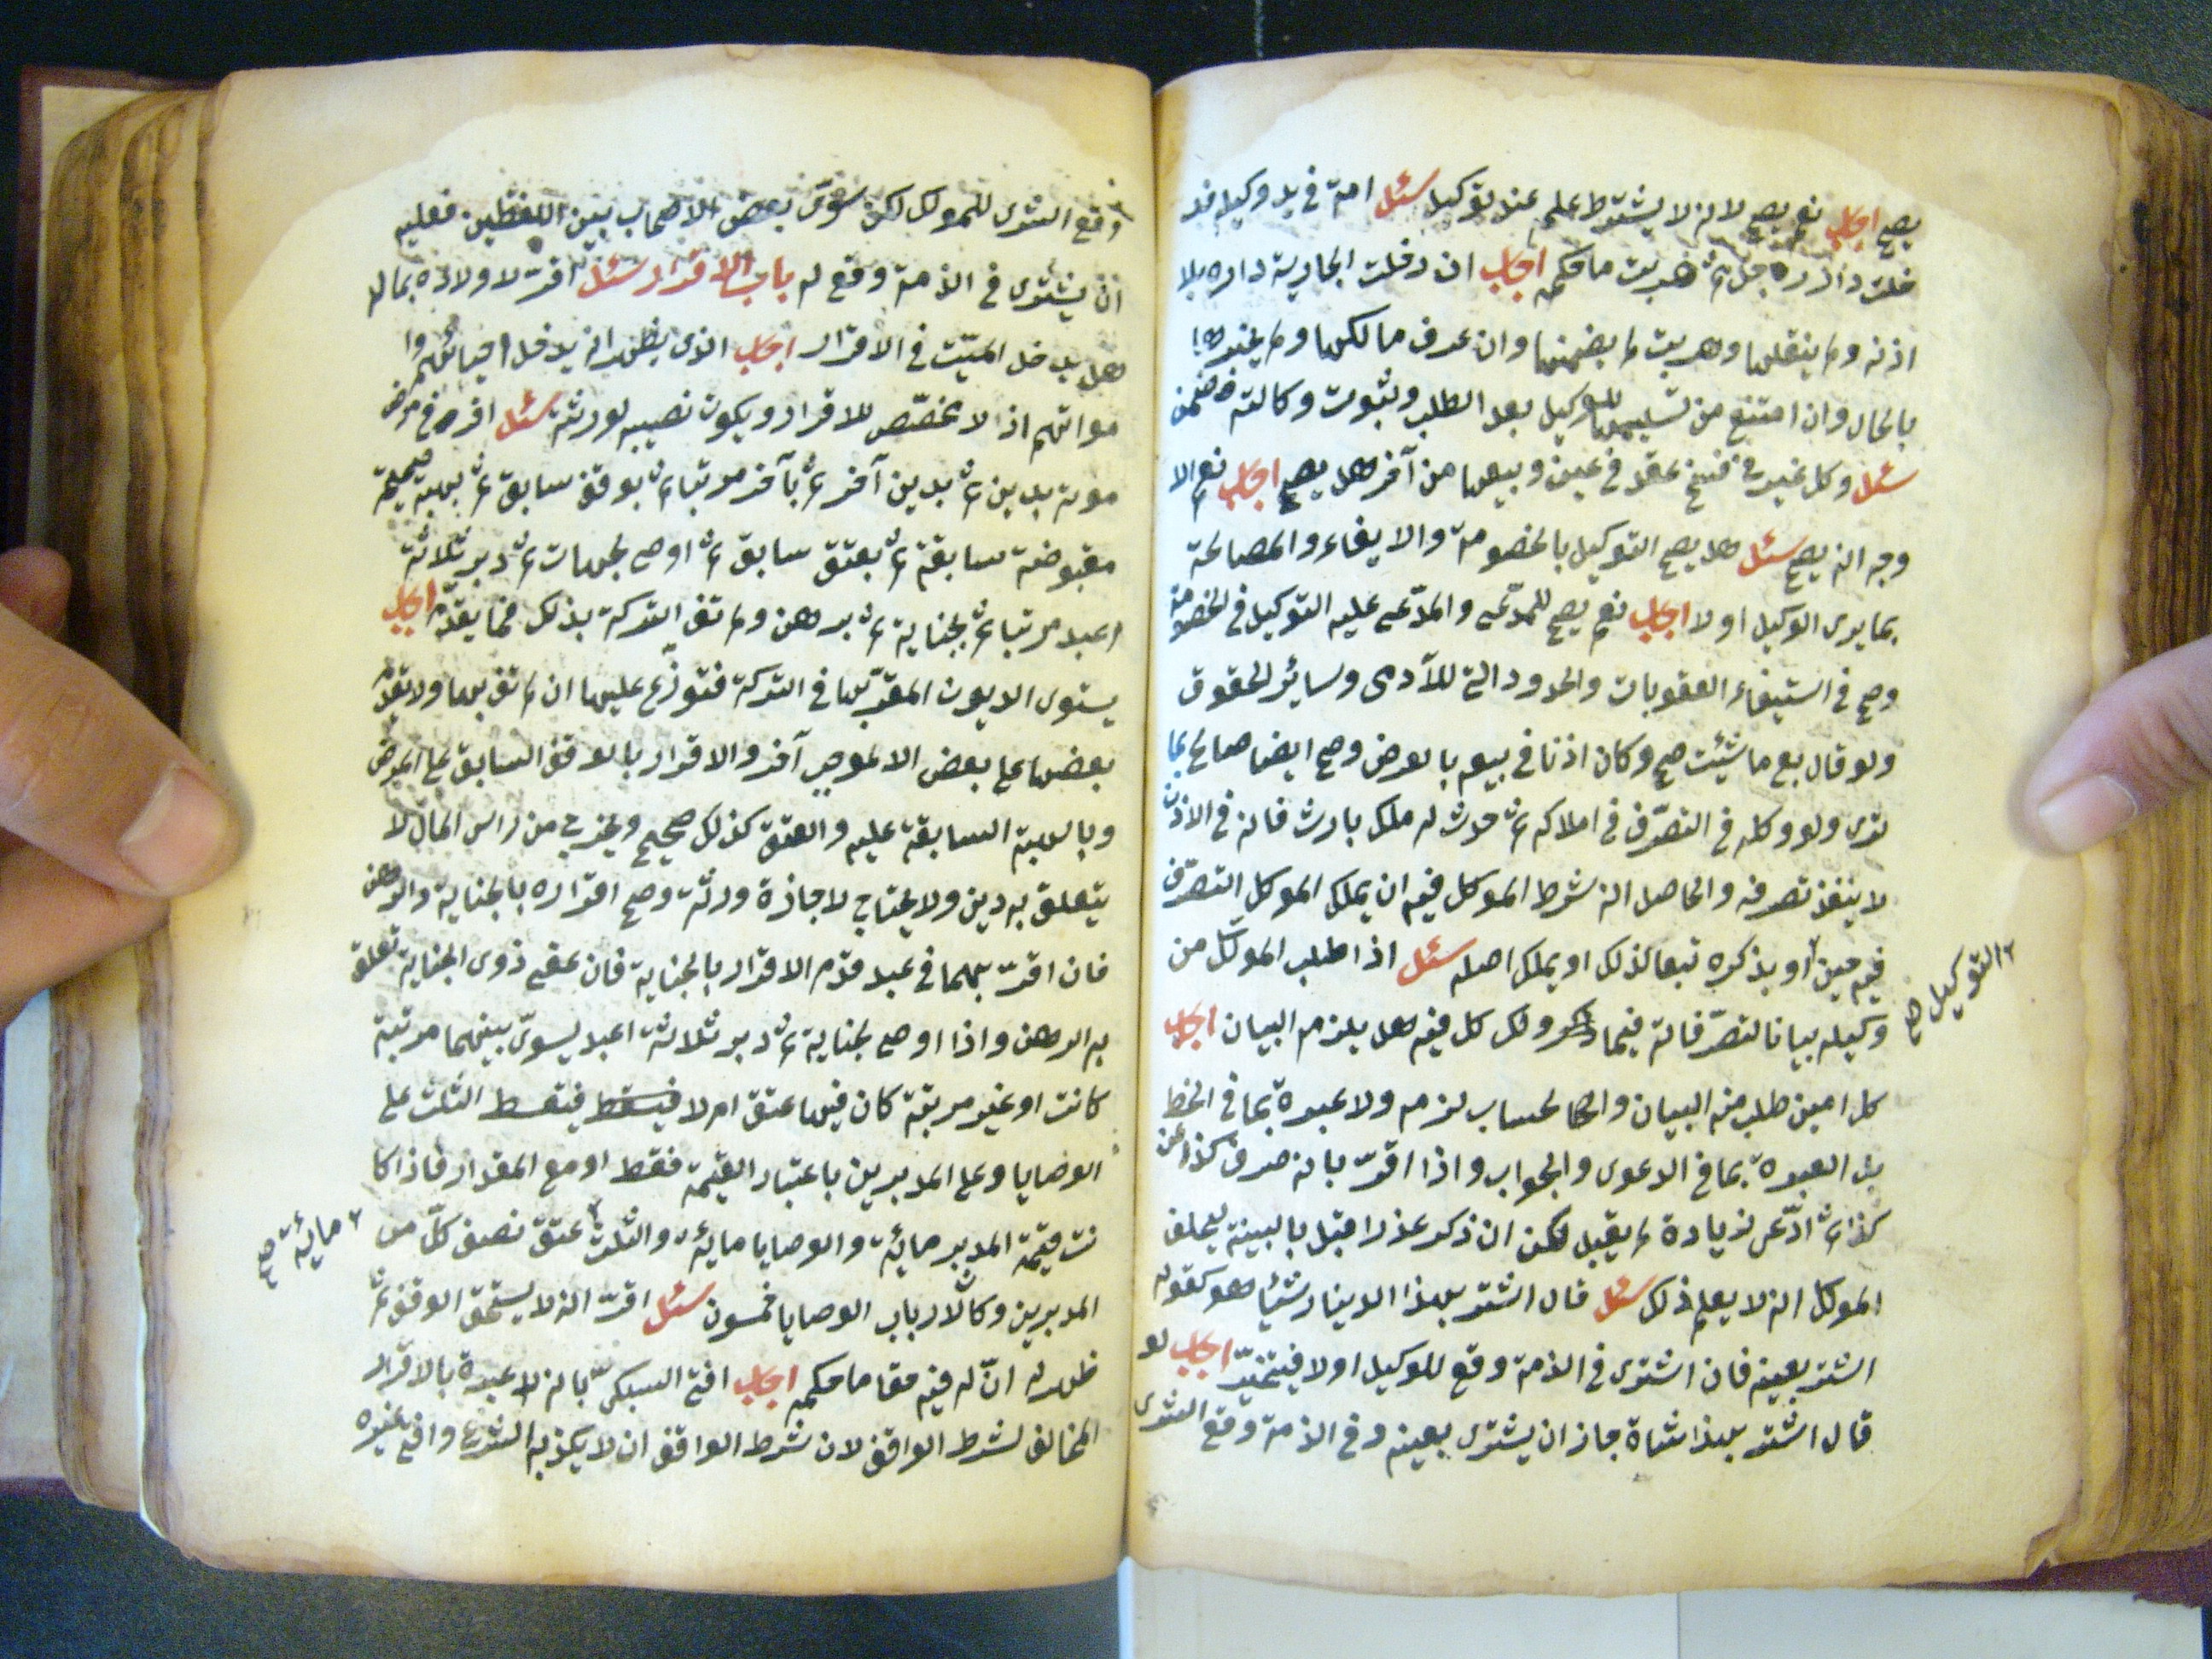 يصح اجاب نعم يصح لانه لا يشترط علمه عند توكيل سئل امة في يد وكيله فد
خلت دار رجل ثم هربت ما حكمه اجاب ان دخلت الجارية داره بلا
اذنه ولم ينقلها وهربت لم يضمنها وان عرف مالكها ولم يخبرها
بالحال وان امتنع من تسليمها للوكيل بعد الطلب وثبوت وكالته ضمن
سئل وكل غيره في فسخ عقد في عين وبيعها من آخر هل يصح اجاب نعم الا
وجه انه يصح سئل هل يصح التوكيل بالخصومة والايفاء والمصالحة
بما يرى الوكيل او لا اجاب نعم يصح للمدّعي والمدّعى عليه التوكيل في الخصومة
وصح في استيفاء العقوبات والحدود التي للآدمي وسائر الحقوق
ولو قال بع ما شئت صح وكان اذنا في بيعه بالعرض وصح ايضا صالح بما
ترى ولو وكله في التصرّف في املاكه ثم حدث له ملك بارث فانه في الاذن
لا ينفذ تصرفه والحاصل انه شرط الموكل فيه ان يملك الموكل التصرّف
فيه حين او بذكره تبعا كذلك او يملك اصله سئل اذا طلب الموكّل من
التوكيل صح
وكيله بيانا لتصرّفاته فيما ذكر ولك كل فيه هل يلزمه البيان اجاب
كل امين طلب منه البيان والحساب لزمه ولا عبرة بما في الخط
بل العبرة بما في الدعوى والجواب واذا اقرّ بانه صرف كذا عن
كذا ثم ادّعى زيادة لم يقبل لكن ان ذكر عذرا قبل بالبينة يحلف
الموكل انه لا يعلم ذلك سئل قال اشتر بهذا الدينار شيئا هو كقوله
اشتر بعينه فان اشترى في الذمة وقع للوكيل او لا فيتخيّر اجاب لو
قال اشتر بهذا شاة جاز ان يشترى بعينه وفي الذمة وقع الشرى
وقع الشرى للموكل لكن سوّى بعض الاصحاب بين اللفظين فعليه
ان يشترى في الذمة وقع له باب الاقرار سئل اقرت لاولاده بمال
هل يدخل الميّت في الاقرار اجاب الذي يظهر انه يدخل احيائهم وا
مواتهم اذ لا مخصّص للاقرار ويكون نصيبه لورثته سئل اقر في مرض
موته بدين ثم بدين آخر ثم بآخر مرتبا ثم بوقف سابق ثم بهبة صحيحة
مقبوضة سابقة ثم بعتق سابق ثم اوصى بجهات ثم دبر ثلاثة
اعبد مرتبا ثم بجناية ثم برهن ولم تف التركة بذلك فما يقدّم اجاب
يستوى الديون المقرّ بها في التركة فتوزّع عليها ان لم تف بها ولا تقدّم
بعضها على بعض الا لموجب آخر والاقرار بالوقف السابق على المرض
وبالهبة السابقة عليه والعتق كذلك صحيح ويخرج من راس المال لا
يتعلق به دين ولا يحتاج لاجازة ورثة وصح اقراره بالجناية والرهن
فان اقرّ بهما في عبد قدّم الاقرار بالجناية فان عفى ذوى الجناية تعلق
به الرهن واذا اوصى بجناية ثم دبر ثلاثة اعبد يسوّى بينهما مرتبة
كانت او غير مرتبة كان فيها عتق ام لا فيقسط الثلث على
الوصايا وعلى المدبرين باعتبار القيمة فقط او مع المقدار فاذا كا
نت قيمة المدبر مائة والوصايا مائة والثلث عتق نصف كلّ من
مائة صح
المدبرين وكان لارباب الوصايا خمسون سئل اقرّ انه لا يستحق الوقف ثم
ظهر له انّ له فيه حقا ما حكمه اجاب افتى السبكيّ بانه لا عبرة بالاقرار
المخالف لشرط الواقف لان شرط الواقف ان لا يكذبه الشرع وافتى غيره